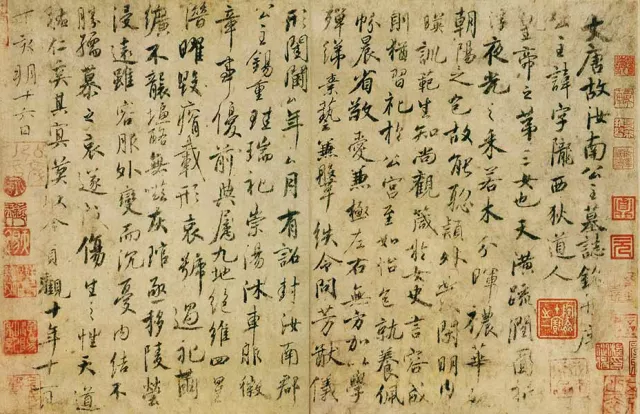 大唐故汝南公主墓誌銘并序
公主諱字隴西狄道人
皇帝之第三女也天潢疏潤圓折
浮夜光之采若木分暉穠華
朝陽之色故能聰穎外發閑明內
暎訓範生知尚觀箴於女史言容成
則猶習礼於公宮至如怡色就養佩
帉晨省敬愛兼極左右無方加以學
殫綈素藝兼鞶紩令問芳猷儀
形閨閫年月有詔封汝南郡
公主錫重珪瑞礼崇湯沐車服徽
章事優前典屬九地絕維四星
潛曜毀瘠載形哀號過礼繭
纊不襲塩酪無嗞灰琯亟移陵塋
浸遠雖容服外變而沉憂內結不
勝孺慕之哀遂成傷生之性天道
祐仁奚其冥漠以今貞觀十年十一
丁亥朔十六日